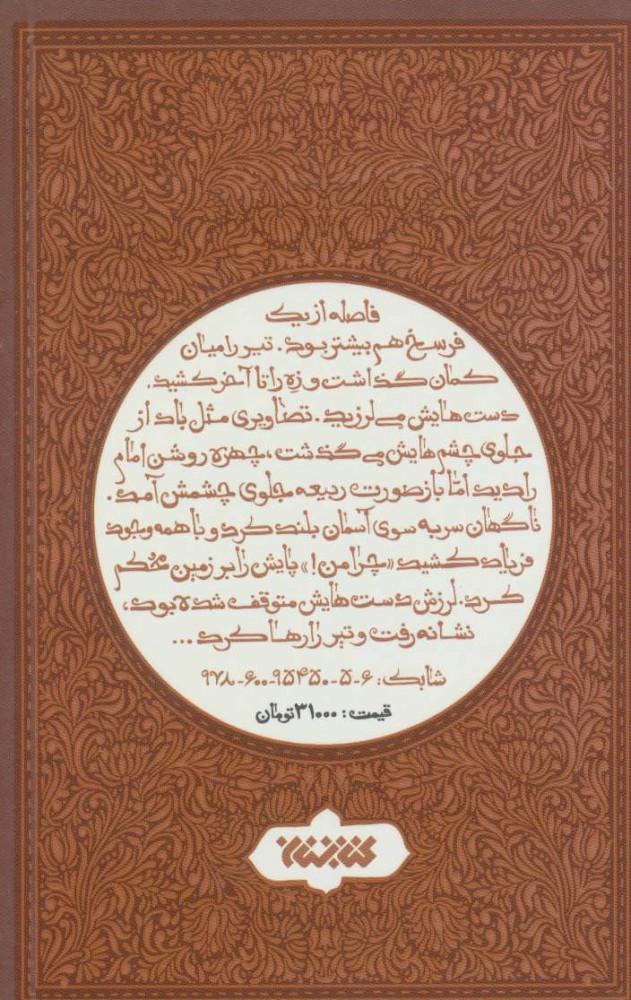 فاصله از یک
فرسخ هم بیشتر بود. تیر را میان
کمان گذاشت و زه را تا آخر کشید.
دست‌هایش می‌لرزید. تصاویری مثل باد از
جلوی چشم‌هایش می‌گذشت، چهره روشن امام
را دید اما باز صورت ربیعه جلوی چشمش آمد.
ناگهان سر به سوی آسمان بلند کرد و با همه وجود
فریاد کشید «چرا من!» پایش را بر زمین محکم
کرد. لرزش دست‌هایش متوقف شده بود،
نشانه رفت و تیر را رها کرد ...
شابک: ۶-۵-۹۵۴۵۰-۶۰۰-۹۷۸
قیمت: ۳۱۰۰۰ تومان
کتابستان